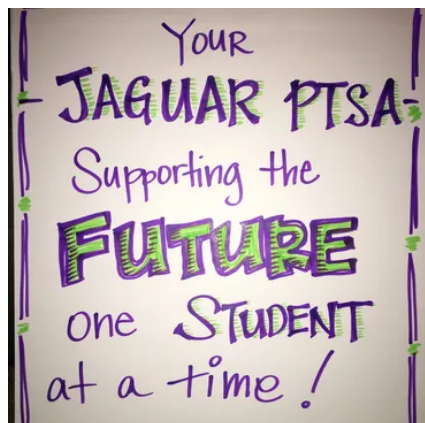 Your
JAGUAR PTSA
Supporting the
FUTURE
one STUDENT
at a time!